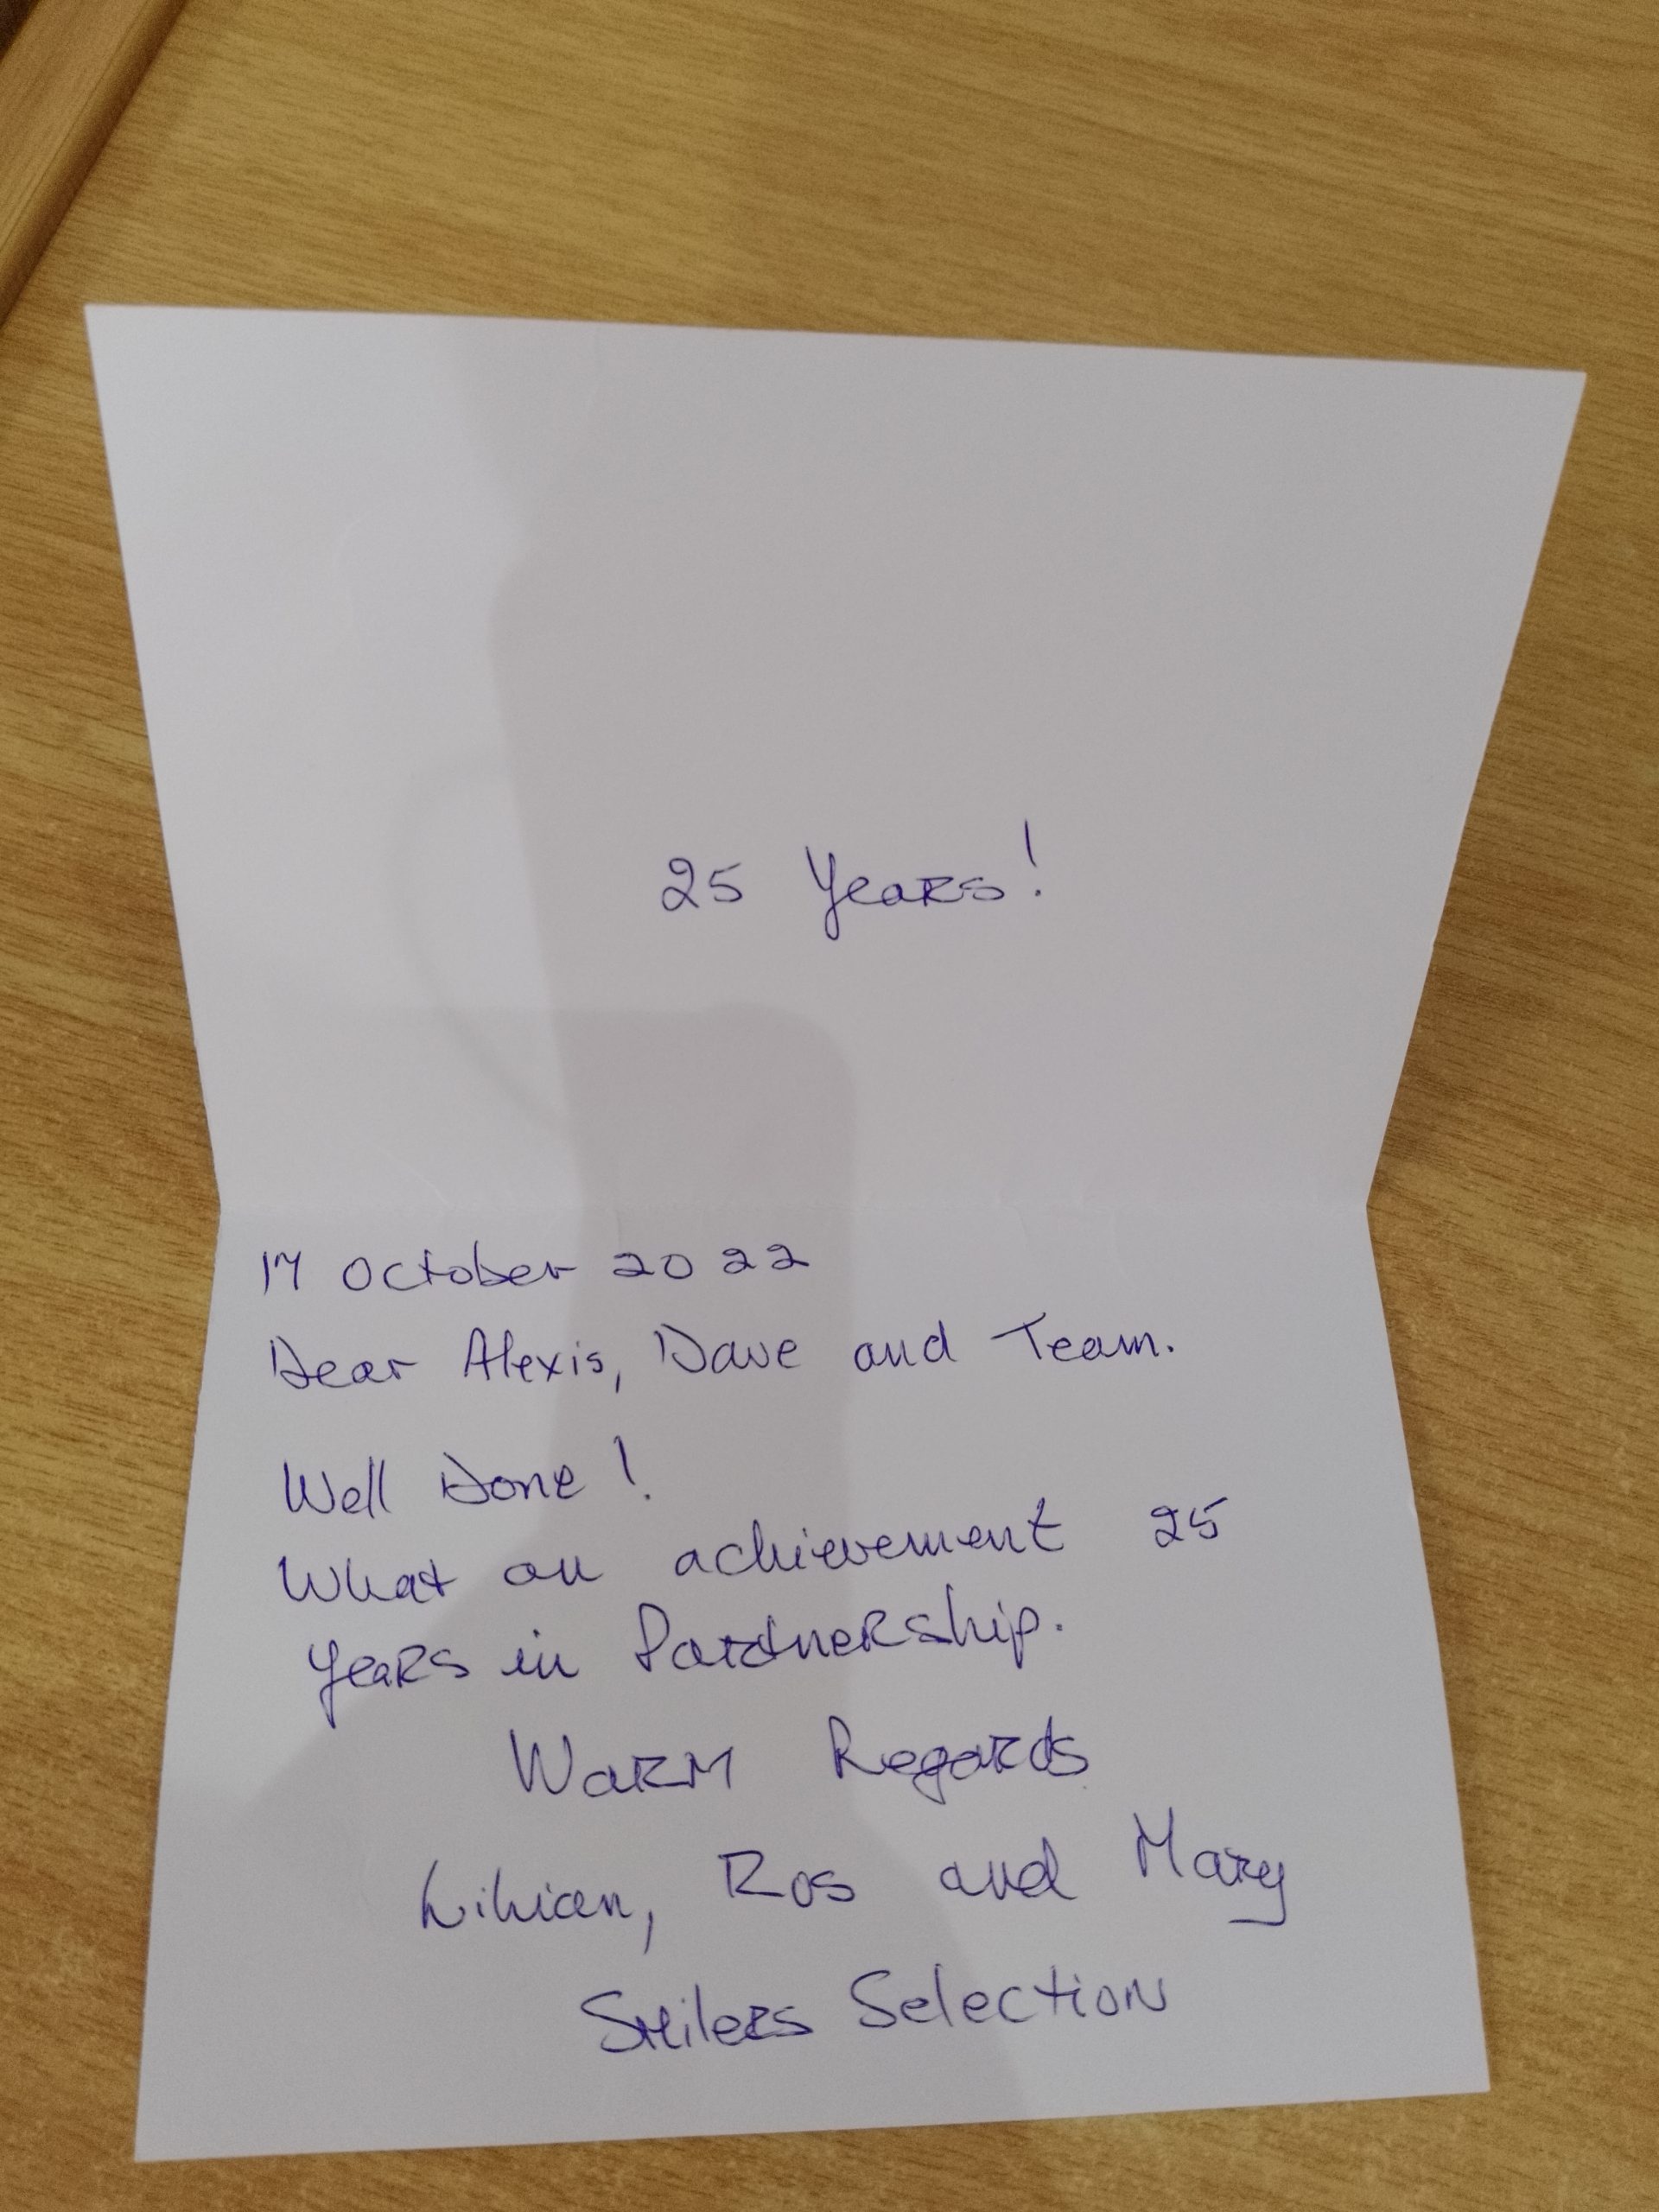 25 Years!
17 October 2022
Dear Alexis, Dave and Team.
Well Done!
What an achievement 25
years in Partnership.
Warm Regards
Lilian, Ros and Mary
Smilers Selection